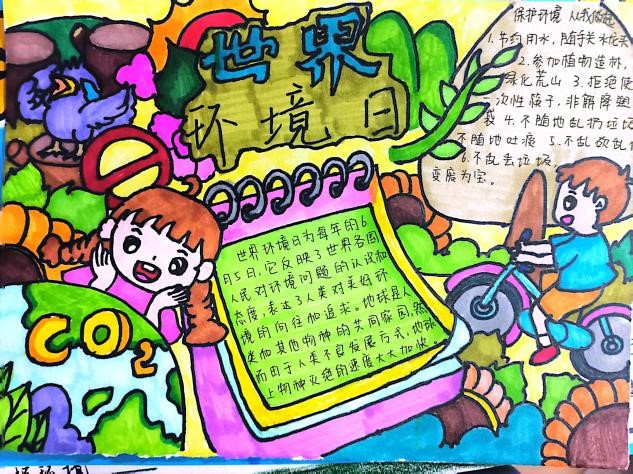 世界
环境日
保护环境 从我做起
1.节约用水,随手关水龙头
2.参加植物造林,
绿化荒山 3.拒绝使
次性筷子,非解降塑
袋 4.不随地乱扔垃圾
不随地吐痰 5.不乱砍乱
6.不乱丢垃圾
变废为宝。
世界环境日为每年的6
月5日,它反映了世界各国
人民对环境问题的认识和
态度,表达了人类对美好环
境的向往和追求。地球是人
类和其他物种的共同家园,然
而由于人类不良发展方式,地球
上物种灭绝的速度大大加快。
CO2